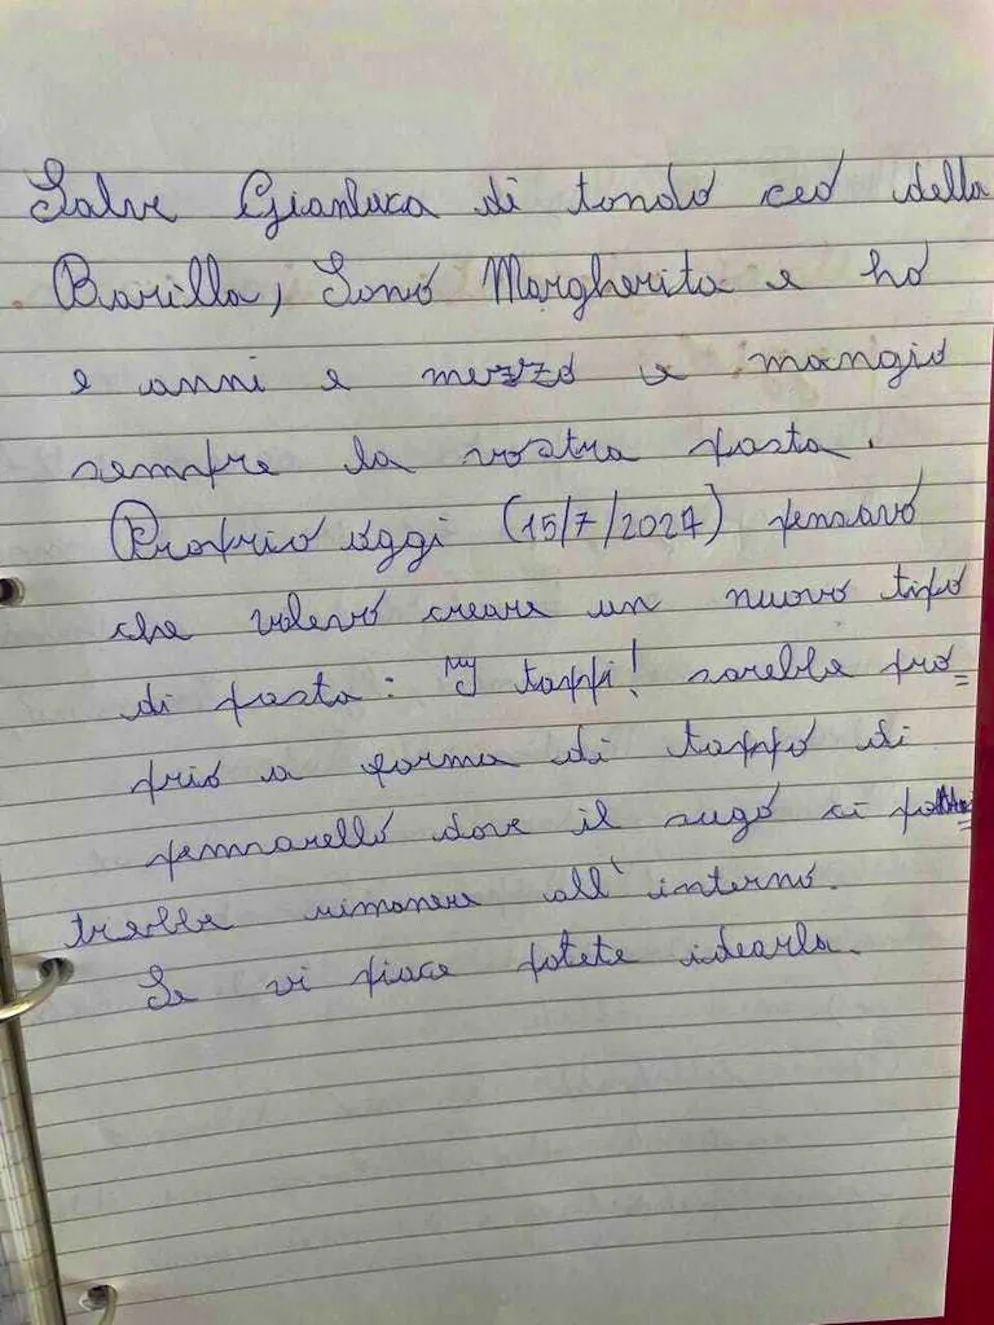 Salve Gianluca di tondo ceo della
Barilla, Sono Margherita e ho
e anni e mezzo e mangio
sempre la vostra pasta.
Proprio oggi (15/7/2024) pensavo
che volevo creare un nuovo tipo
di pasta: I tappi! sarebbe pro=
prio a forma di tappo di
pennarello dove il sugo ci
trebbe rimanere all'interno.
Se vi piace potete idearla.